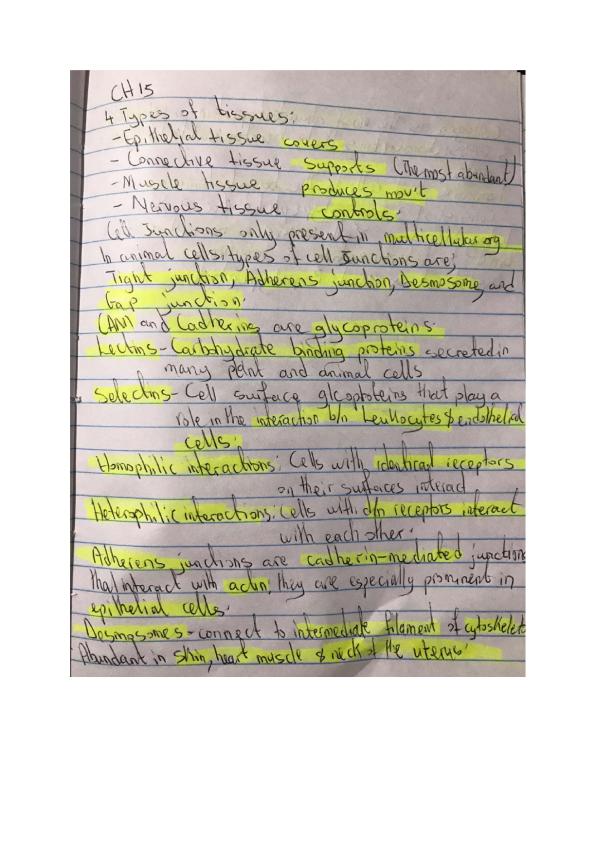 CH 15
4 Types of tissues:
-Epithelial tissue covers
- Connective tissue supports (The most abundant)
-Muscle tissue produces mov't
- Nervous tissue controls.
Cell Junctions only present in multicellular org
In animal cells, types of cell junctions are;
Tight junction, Adherens junction, Desmosome, and
Gap junction.
CAM and Cadherins are glycoproteins.
Lectins- Carbohydrate binding proteins secreted in
many plant and animal cells
Selectins- Cell surface glcoptoteins that play a
role in the interaction b/n Leukocytes & endothelial
cells.
Homophilic interactions: Cells with identical receptors
on their surfaces interact
Heterophilic interactions: Cells with d/n receptors interact
with each other.
Adherens junctions are cadherin-mediated junctions
that interact with actin, they are especially prominent in
epithelial cells.
Desmosomes - connect to intermediate filament of cytoskelet
Abundant in skin, heart muscle & neck of the uterus.